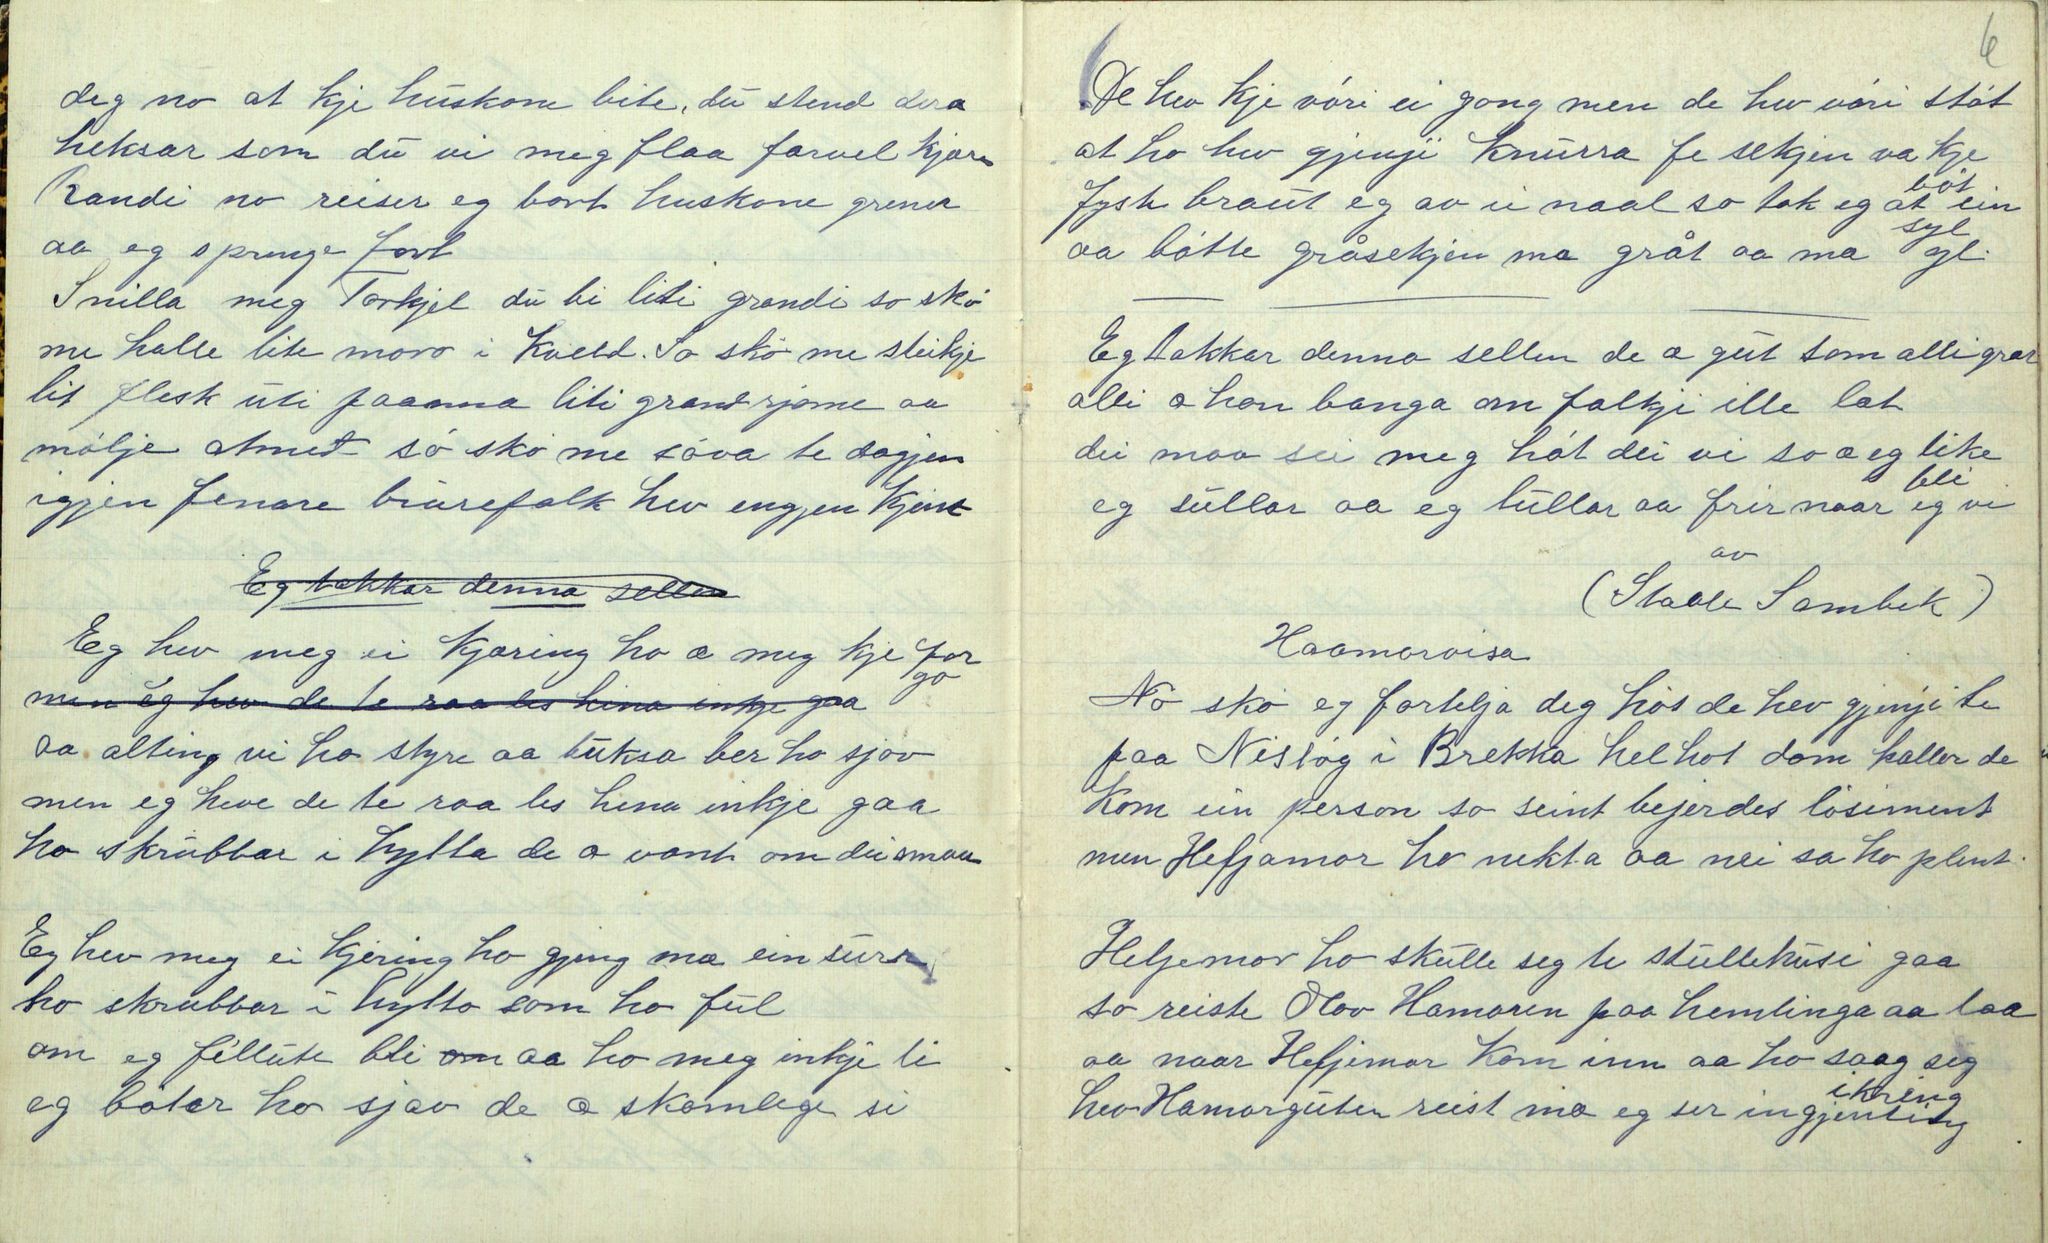 deg no at kje huskone bite, du stend dera
heksar som du vi meg flaa farvel kjære
Randi no reiser eg bort huskone grener
aa eg springe fort
Snilla meg Torkjel du bi liti grandi so sko
me halle lite moro i kveld. So sko me steikje
lit flesk uti paanna liti grand rjome aa
mólje atmed só sko me sóva te dagjen
igjen fenare biurefalk hev engjen kjent
Eg takkar denna sellen
Eg hev meg ei kjæring ho æ meg kje for go
men eg hev de te raa les hena inkje gaa
aa alting vi ho styre aa buksa ber ho sjov
men eg heve de te raa les hena inkje gaa
ho skrubbar i hytta de æ vant om dei smaa
Eg hev meg ei kjering ho gjeng mæ ein surr
ho skrubbar i hytto som ho ful
om eg fillute bli om aa ho meg inkje li
eg bótar ho sjav de æ skamlege si
6
De hev kje vóri ei gong men de hev vóri stót
at ho hev gjenji knurra fe sekjen va kje bót
fysst braut eg av ei naal so tok eg at ein syl
aa bótte gråsekjen mæ gråt aa mæ yl.
Eg takkar denna sellen de æ gut som alli græt
alli æ han banga om falkji ille læt
dei maa sei meg hót dei vi so æ eg like bli
eg sullar aa eg tullar aa frir naar eg vi
av
(Staale Sambek)
Haamorvisa
No sko eg fortelja deg hós de hev gjenji te
paa Nislóg i Brekka hel hot dom kaller de
Kom ein person so seint bejerdes lósiment
men Hefjamor ho nekta aa nei sa ho plent.
Heljemor ho skulle seg te stullehusi gaa
so reiste Olav Hamoren paa hemlinga aa laa
aa naar Hefjemor kom inn aa ho saag seg ikring
hev Hamorguten reist mæ eg ser ingjenting